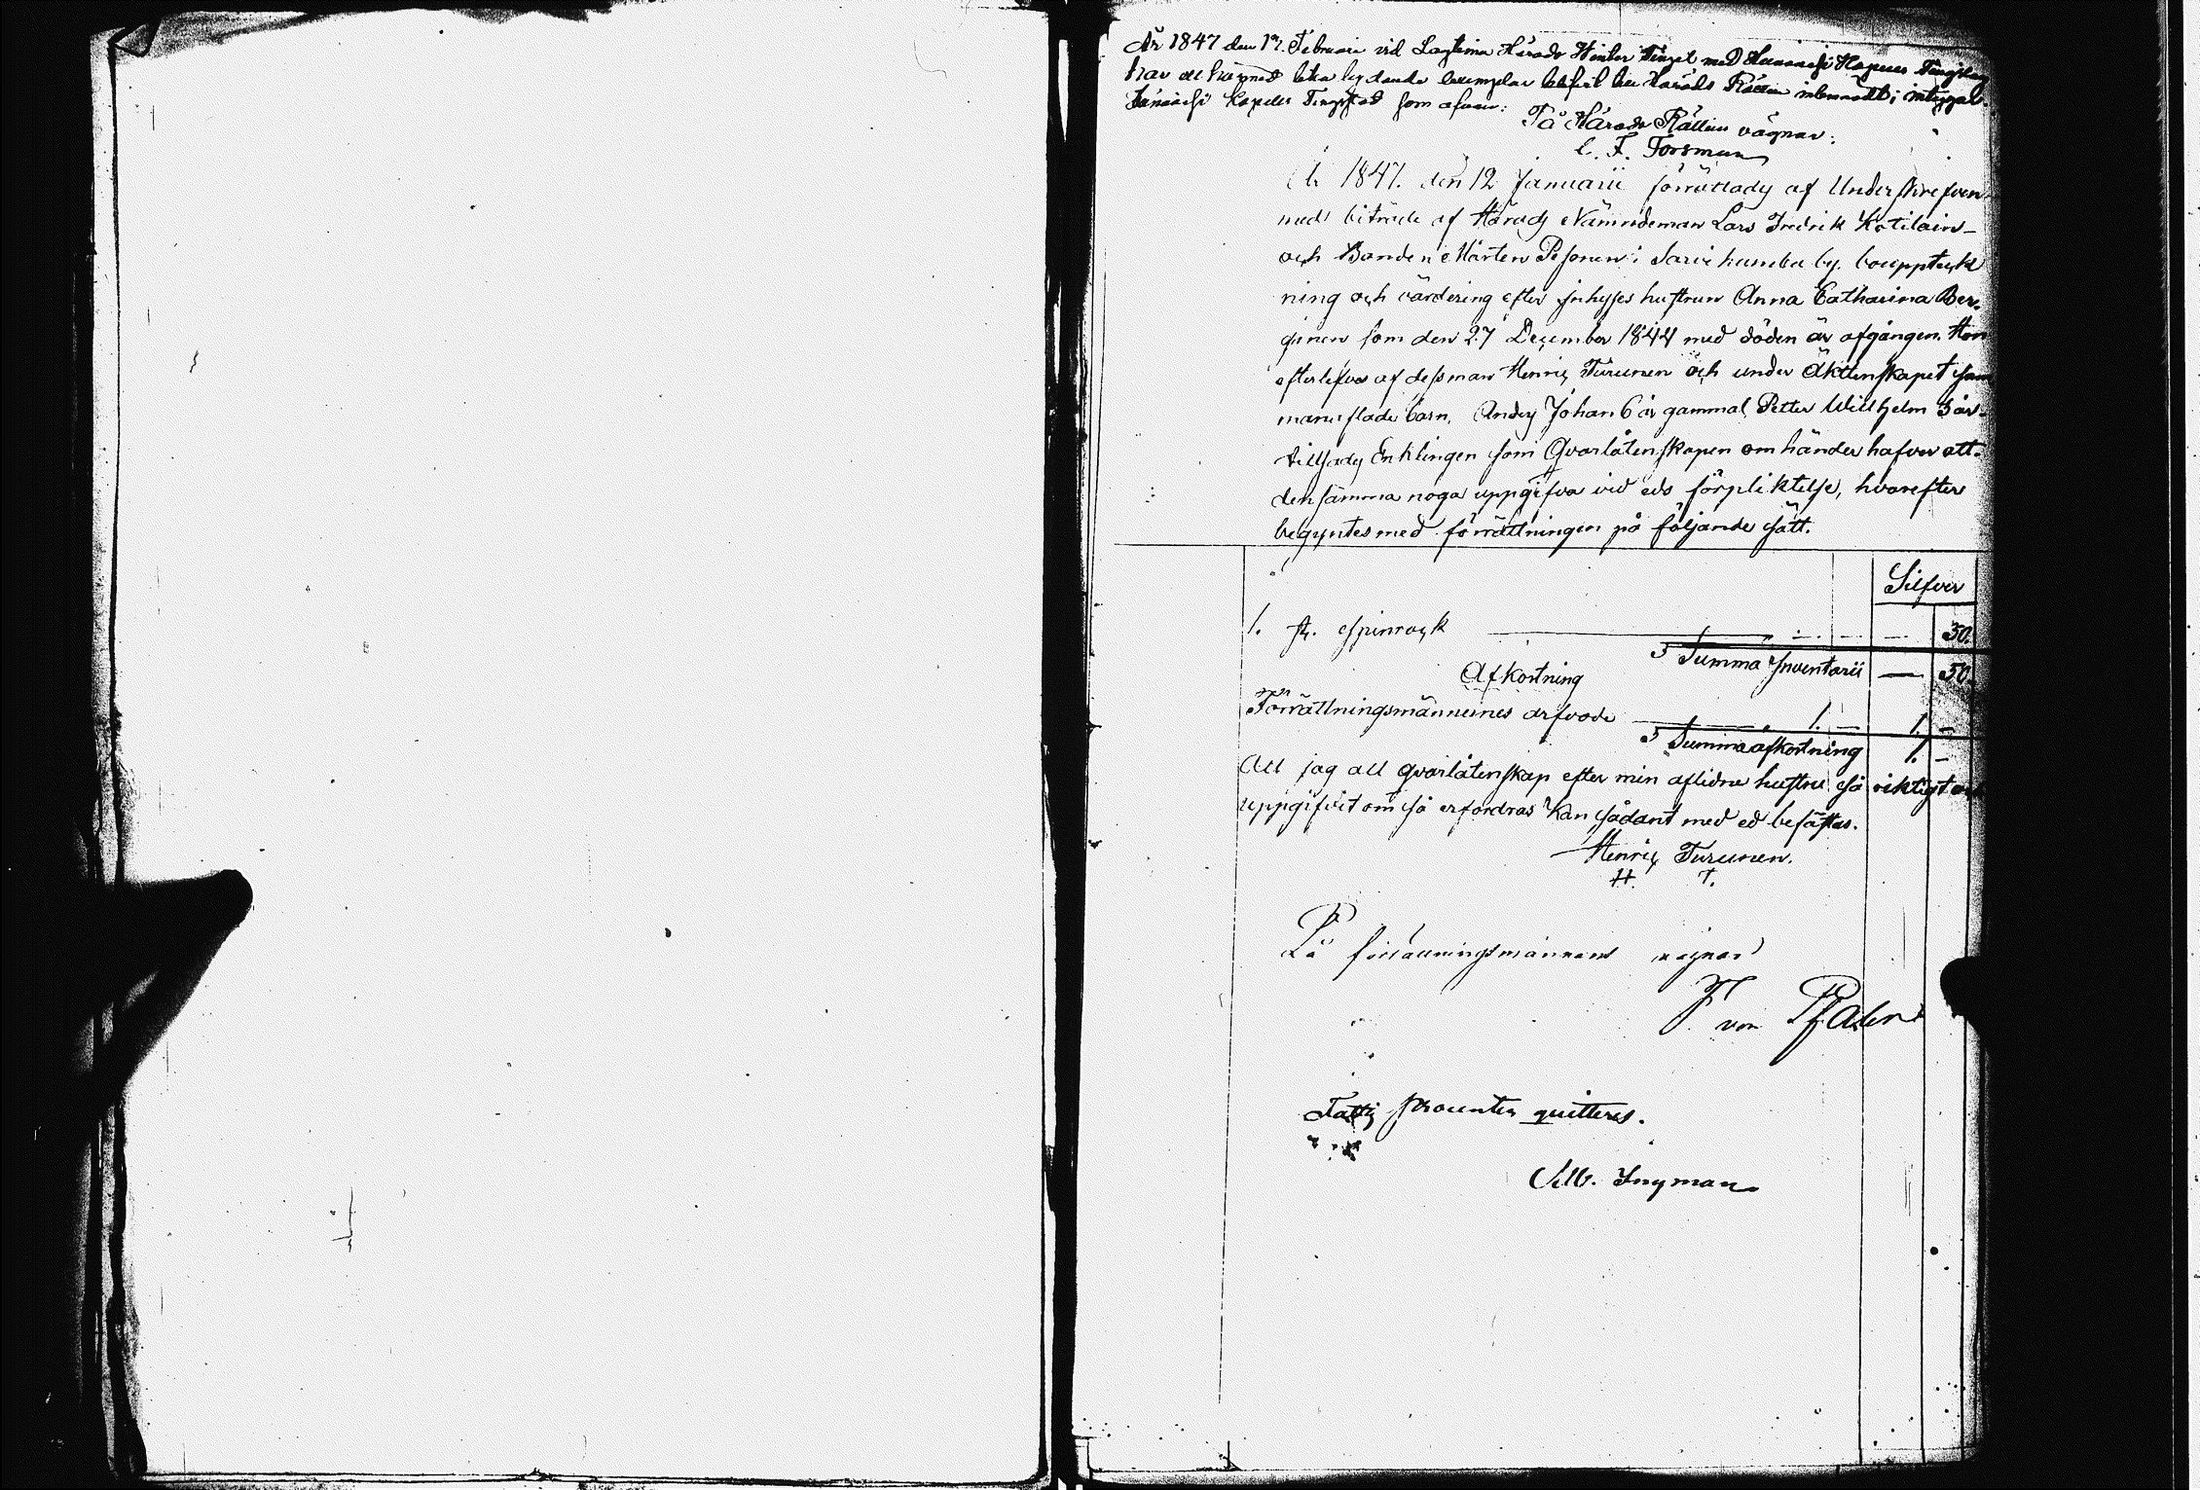 År 1847 den 17. Februarii vid Lagtima Härads Winter Tinget med Kapells Tingslag
har ett lika lydande exemplar blifvit till Härads Rätten inlemnadt; intygar.
Kapells Tingstad som ofvan:
På Härads Rättens vägnar:
C. F. Forsman
År 1847. den 12 Januarii förrättades af Underskrefven
med biträde af Härads Nämndeman Lars Fredrik Kotilain-
och Bonden Mårten Pesonen i Sarvikumbu by. bouppteck
ning och värdering efter Inhyses hustrun Anna Catharina Ber-
ginen som den 27 December 1844 med döden är afgången. Hon
efterlefves af dess man Henric Turunen och under Äktenskapet sam
manaflade barn, Anders Johan 6 år gammal, Petter Willhelm 3 år-
tillsades Enklingen som Qvarlåtenskapen om händer hafver att-
densamma noga uppgifva vid eds förpliktelse, hvarefter
begyntes med förrättningen på följande sätt.
Silfver
1. st. spinrock 50.
Summa Inventarii — 50.
Afkortning
Förrättningsmännernes arfvode 1. — 1. —
Summa afkortning 1. —
Att jag all qvarlåtenskap efter min aflidne hustru så riktigt
uppgifvit om så erfordras kan sådant med ed befästas.
Henric Turunen.
H. T.
På förrättningsmännens vägnar
F von Pfaler
Fattig procenten quitteras.
Ingman